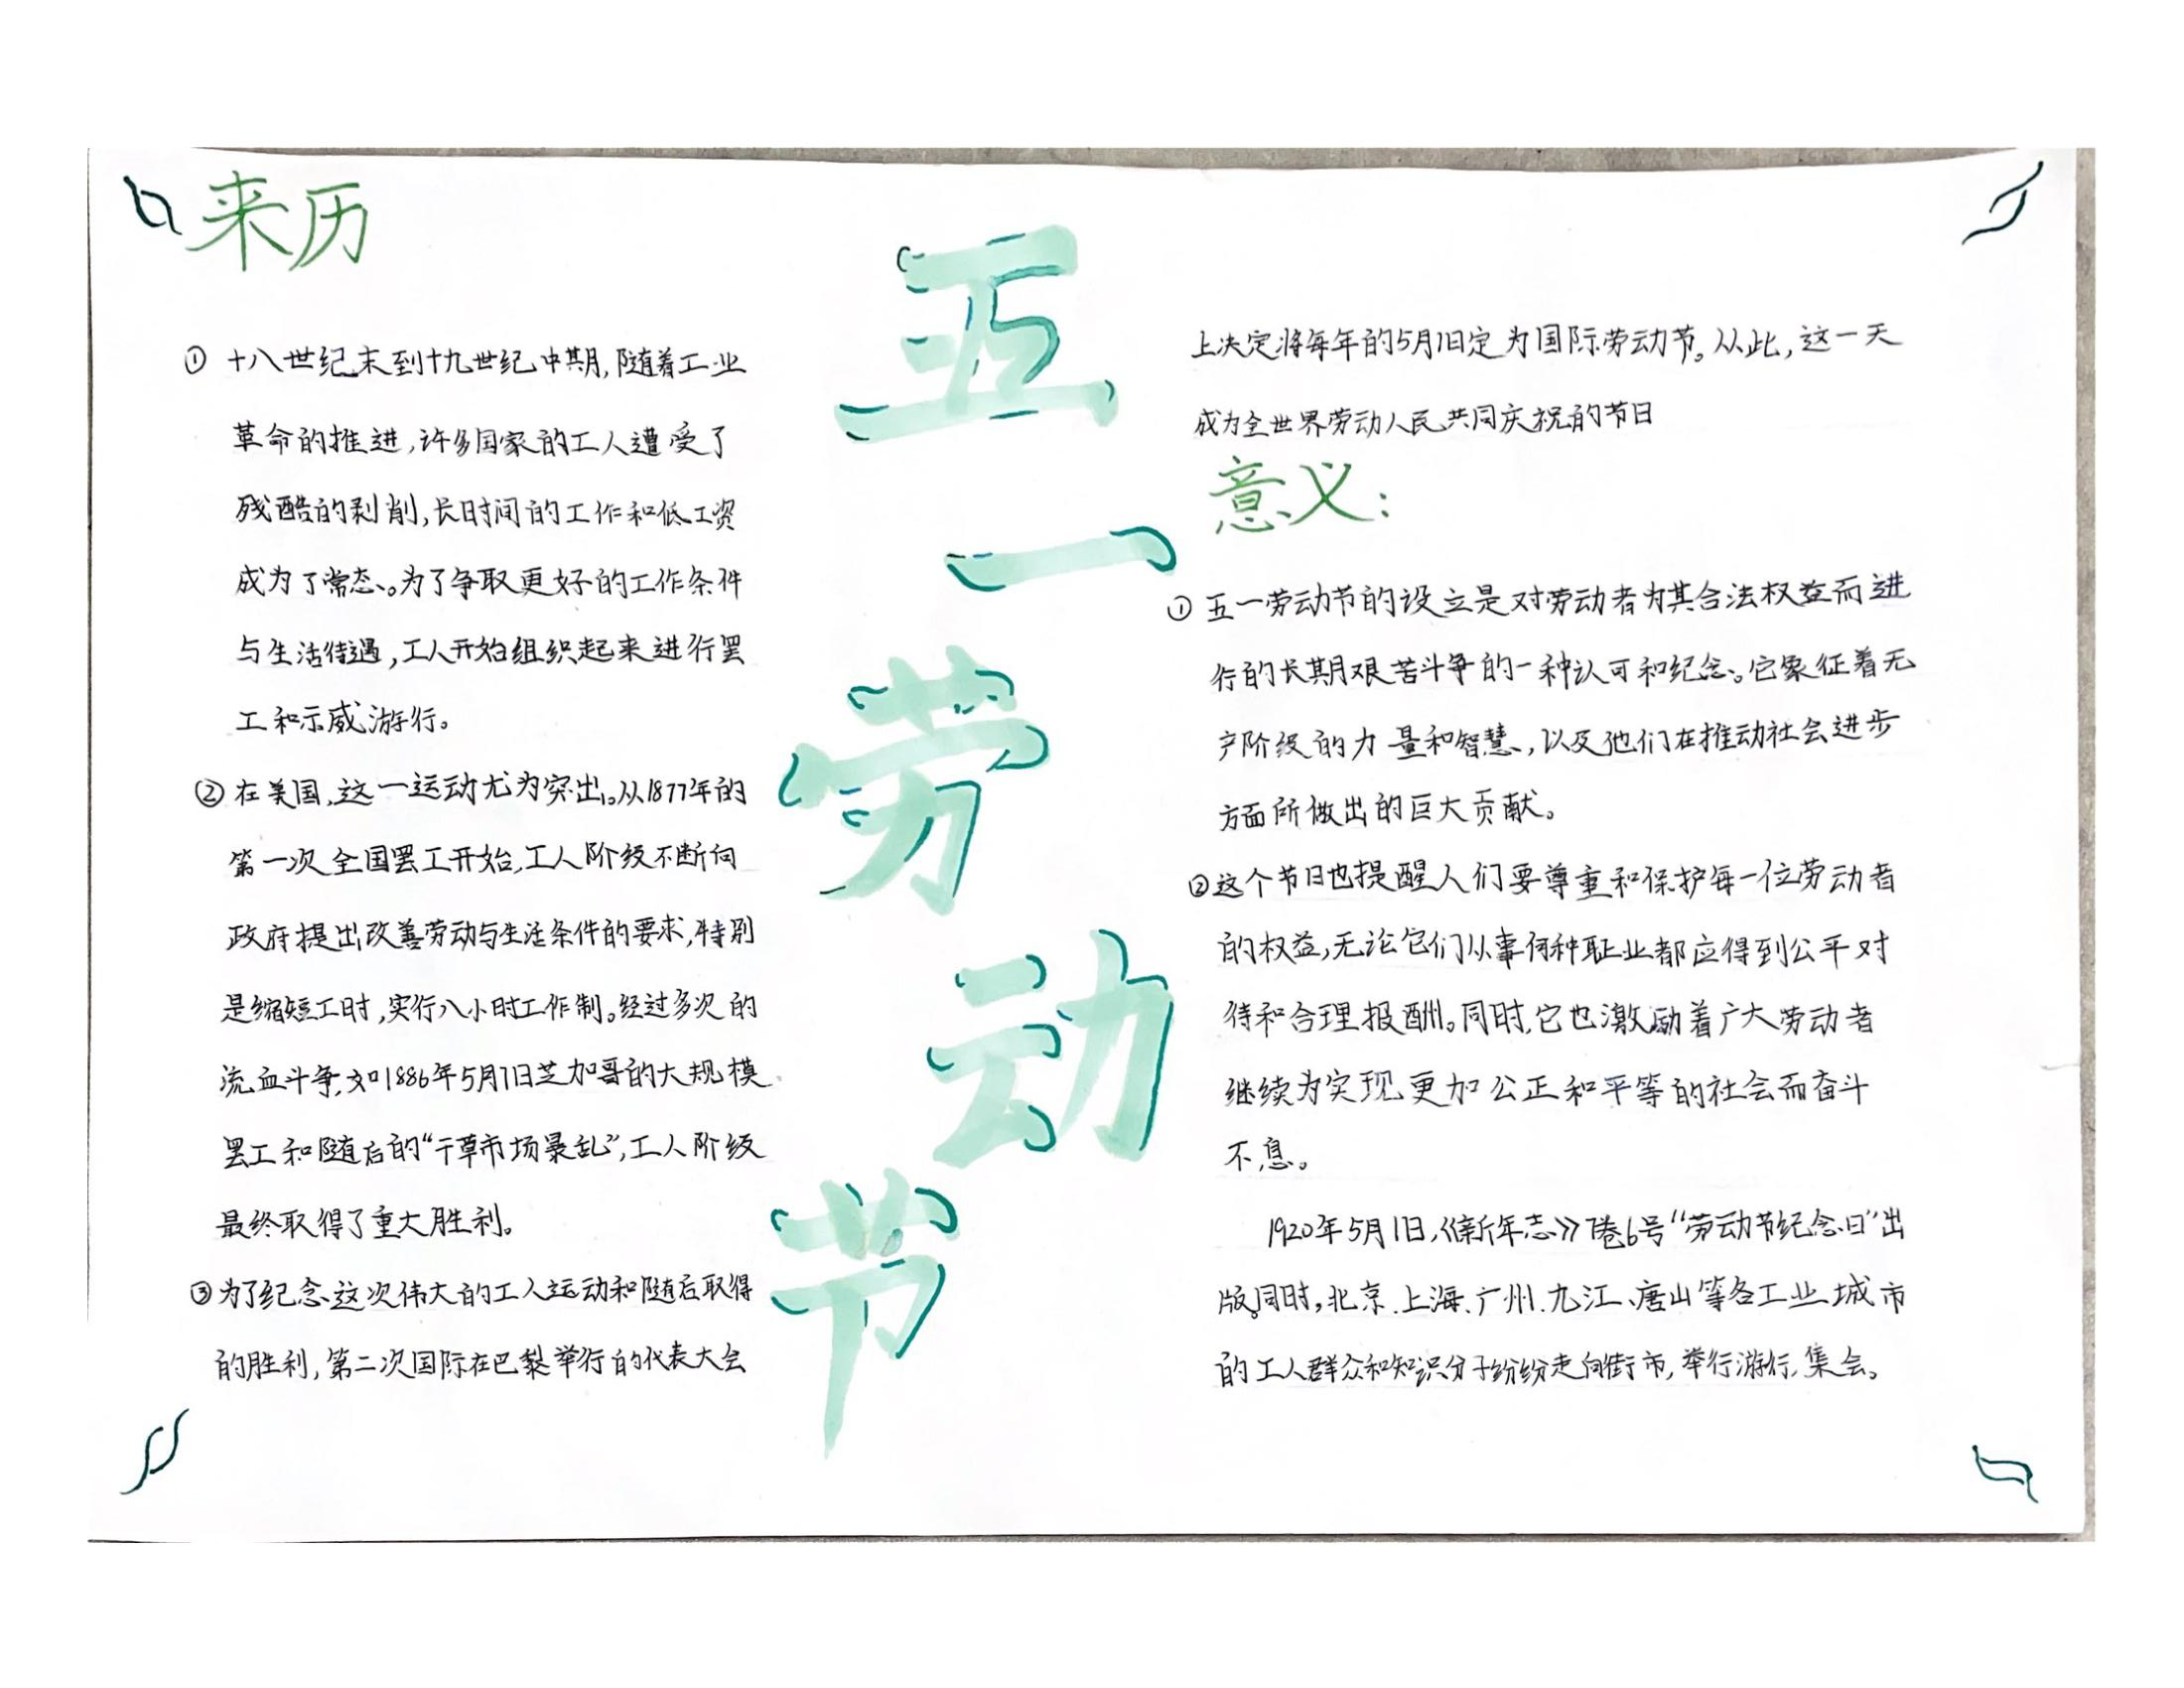 来历
① 十八世纪末到十九世纪中期,随着工业
革命的推进,许多国家的工人遭受了
残酷的剥削,长时间的工作和低工资
成为了常态。为了争取更好的工作条件
与生活待遇,工人开始组织起来进行罢
工和示威游行。
② 在美国,这一运动尤为突出。从1877年的
第一次全国罢工开始,工人阶级不断向
政府提出改善劳动与生活条件的要求,特别
是缩短工时,实行八小时工作制。经过多次的
流血斗争,如1886年5月1日芝加哥的大规模
罢工和随后的“干草市场暴乱”,工人阶级
最终取得了重大胜利。
③ 为了纪念这次伟大的工人运动和随后取得
的胜利,第二次国际在巴黎举行的代表大会
五
一
劳
动
节
上决定将每年的5月1日定为国际劳动节。从此,这一天
成为全世界劳动人民共同庆祝的节日
意义:
① 五一劳动节的设立是对劳动者为其合法权益而进
行的长期艰苦斗争的一种认可和纪念。它象征着无
产阶级的力量和智慧,以及他们在推动社会进步
方面所做出的巨大贡献。
② 这个节日也提醒人们要尊重和保护每一位劳动者
的权益,无论它们从事何种职业都应得到公平对
待和合理报酬。同时,它也激励着广大劳动者
继续为实现更加公正和平等的社会而奋斗
不息。
1920年5月1日,《新年志》7卷6号“劳动节纪念日”出
版。同时,北京、上海、广州、九江、唐山等各工业城市
的工人群众和知识分子纷纷走向街市,举行游行、集会。